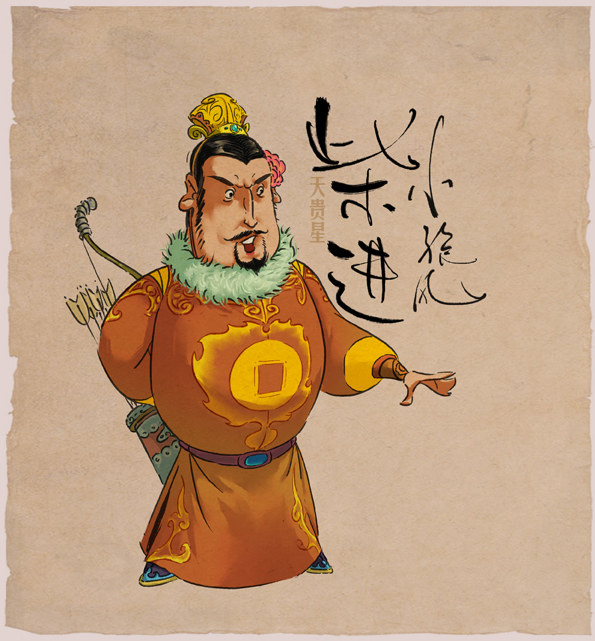 小旋风
柴进
天贵星